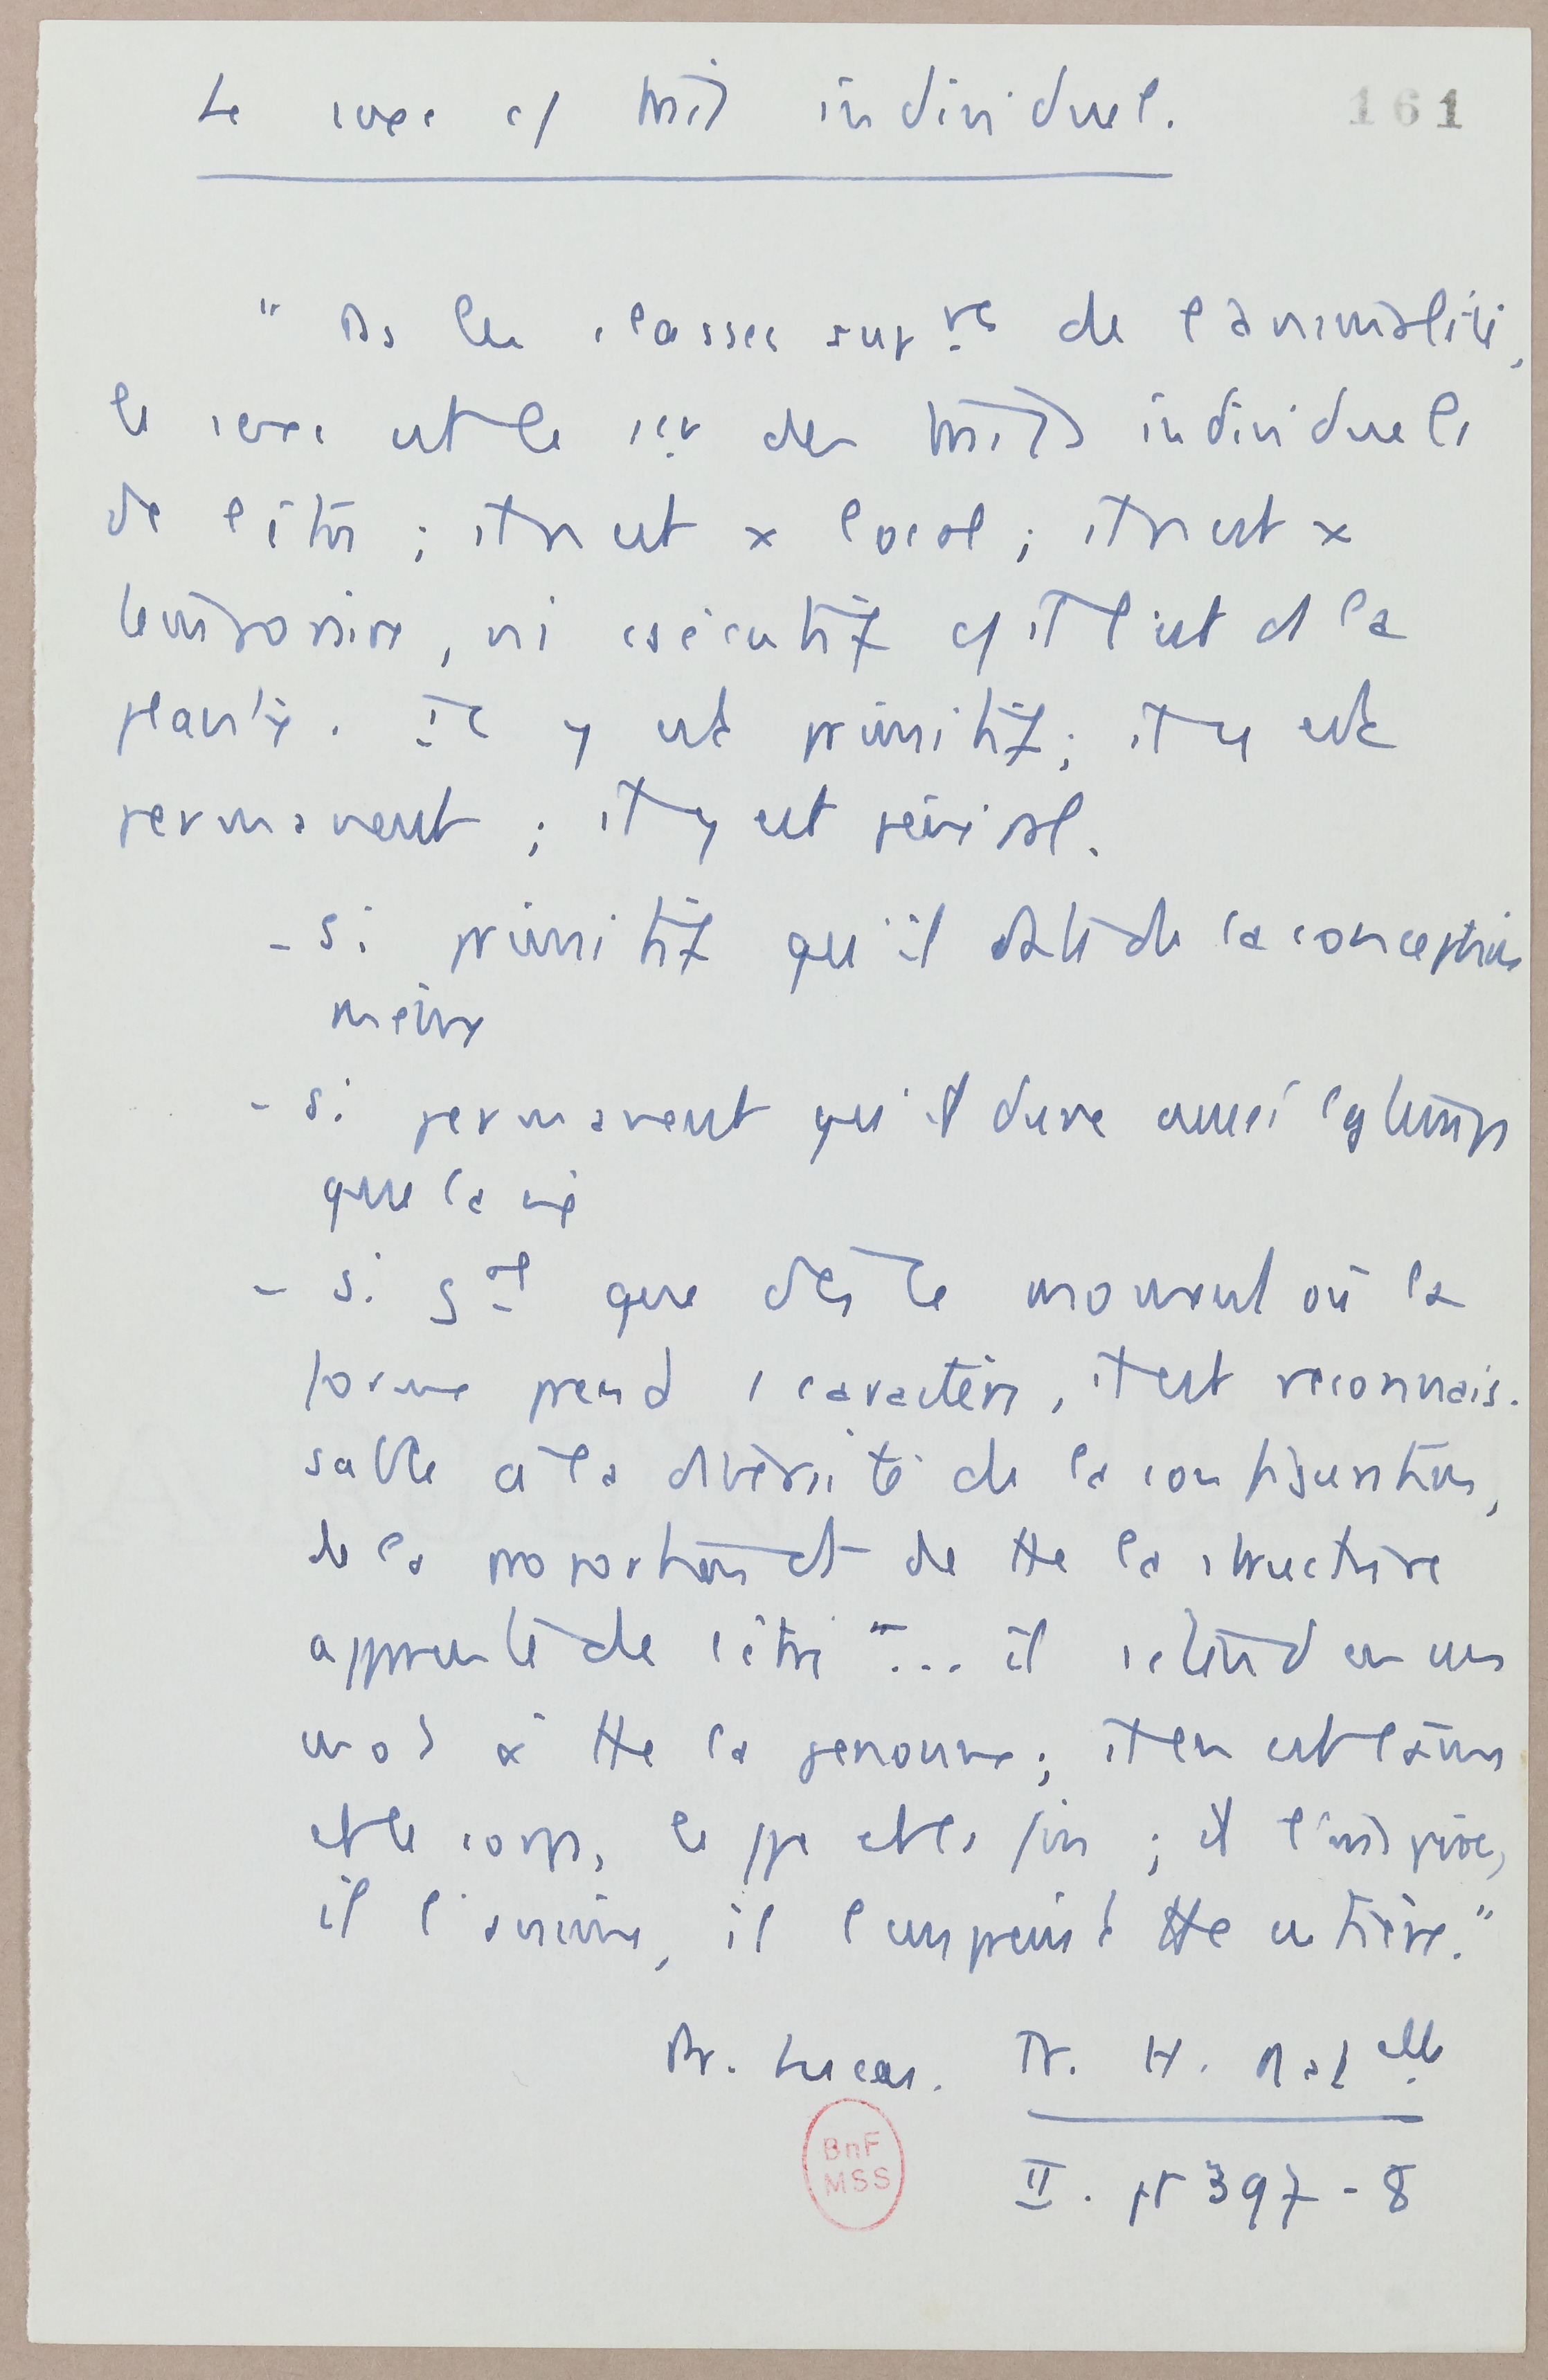 Le sexe c/ trait individuel.
161
" Ds les classes supres de l'animalité,
le sexe est le 1er des traits individuels
de l'être ; il n'est x local ; il n'est x
temporaire, ni consécutif c/ il l'est ds la
plante. Il y est primitif ; il y est
permanent ; il y est général.
- si primitif qu'il date de la conception
même
- si permanent qu'il dure aussi lgtemps
que la vie
- si gal que dès le moment où la
forme prend 1 caractère, il est reconnais-
sable à la diversité de la configuration,
de la proportion et de tte la structure
apparente de l'être "... il s'étend en un
mot à tte la personne ; il en est l'âme
et le corps, le ppe et la fin ; il l'inspire,
il l'anime, il l'empreint tte entière."
Pr. Lucas. Tr. H. Natelle
II. pp 397-8
BnF
MSS